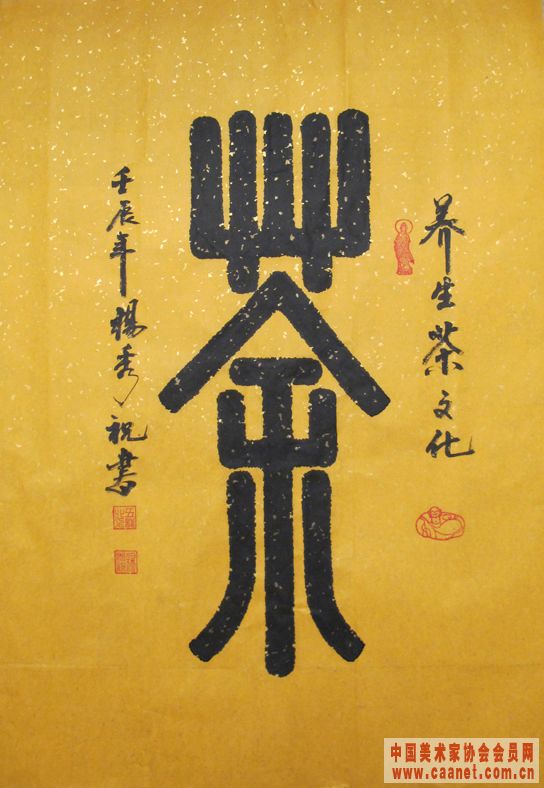 养生茶文化
茶
壬辰年楊秀祝書
中国美术家协会会员网
www.caanet.com.cn